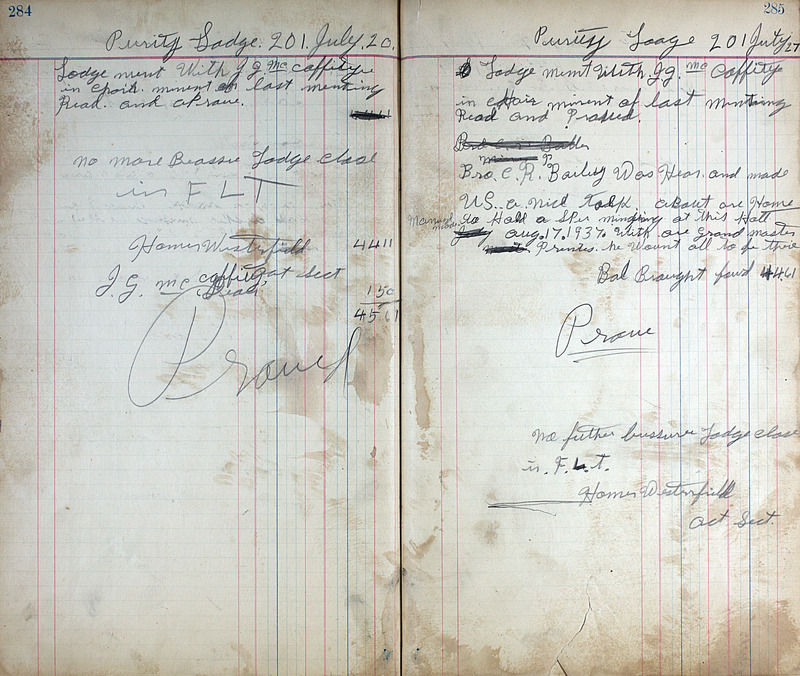 284
Purity Lodge. 201. July. 20.
Lodge ment With J g. Mc caffitye
in chair. minent of last menting
Read. and aProve.
no more Beassie Lodge close
in F L T
Homer Westerfield 4411
J. G. Mc caffity at sect
150
4561
Proved
285
Purity Loage 201 July 27
Lodge ment With. J g. Mc Caffity
in chair minent of last menting
Read and Prased.
Bro. C. R. Bailey Was Hear. and made
US. a nice talk. about are Home
to Hall a SPer minging at this Hall
aug. 17. 1937. With are grand master
Prentes. he Wount all to be their
Bal Braught fowd 4461
Prove
no futher bussure Lodge close
in. F. L. T.
Homer Westerfield
act Sect.